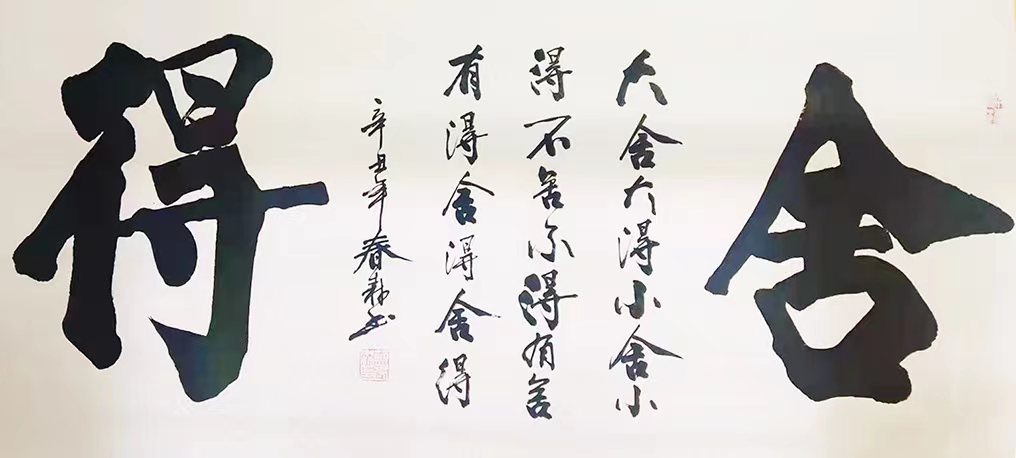 舍
大舍大得小舍小
得不舍不得有舍
有得舍得舍得
得
辛丑年春森书